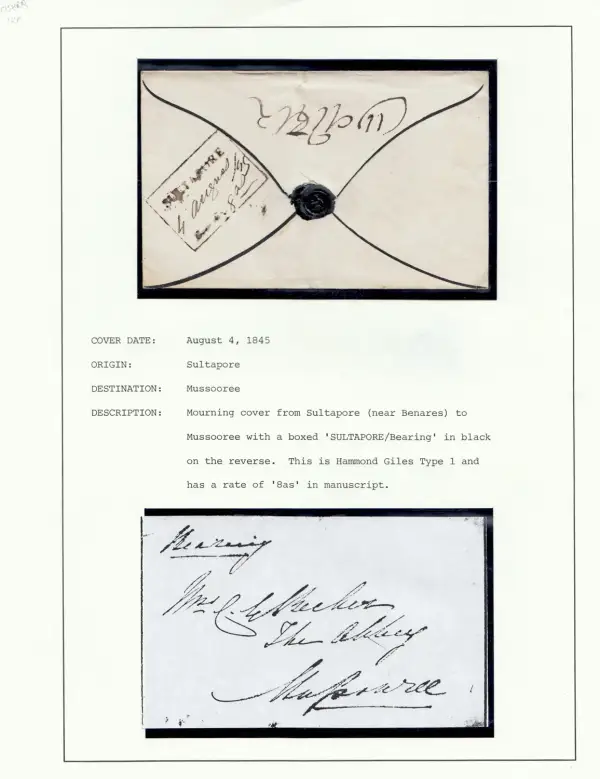 SULTAPORE
4 August /45
8as
COVER DATE: August 4, 1845
ORIGIN: Sultapore
DESTINATION: Mussooree
DESCRIPTION: Mourning cover from Sultapore (near Benares) to
Mussooree with a boxed 'SULTAPORE/Bearing' in black
on the reverse. This is Hammond Giles Type 1 and
has a rate of '8as' in manuscript.
Bearing
Mrs C.
The Abbey
Mussooree